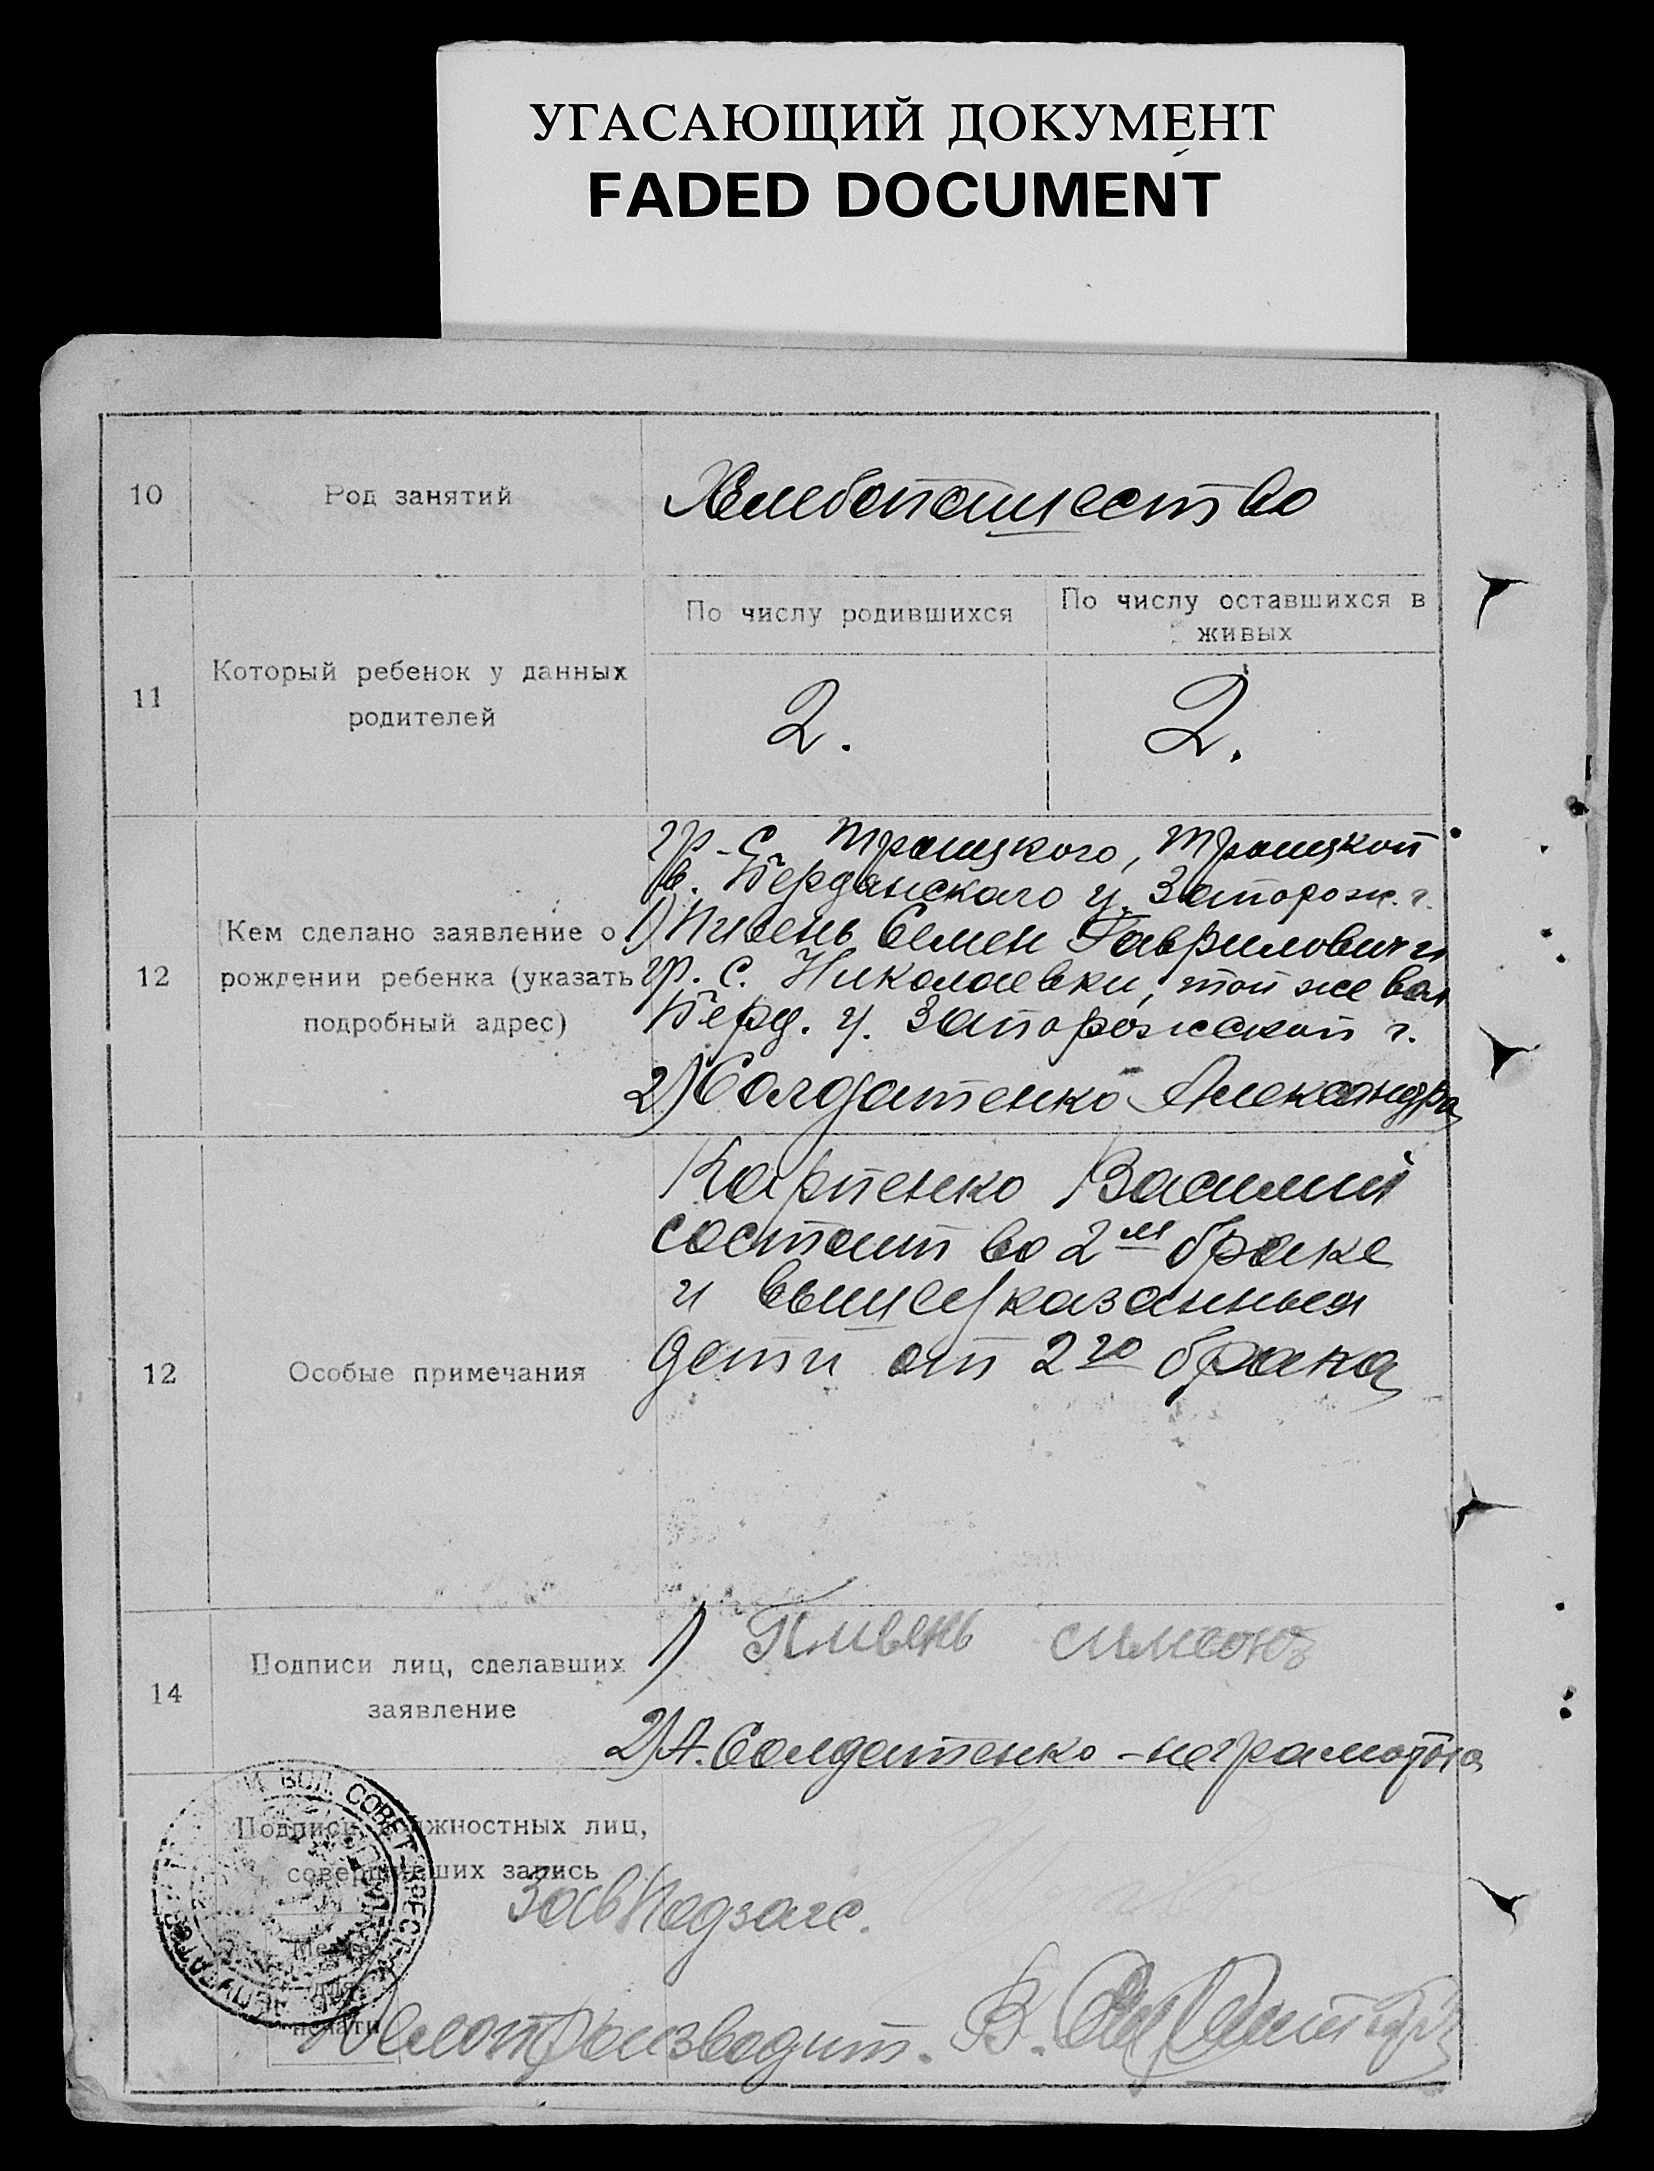 УГАСАЮЩИЙ ДОКУМЕНТ
FADED DOCUMENT
10
Род занятий
Хлебопашество
11
Который ребенок у данных
родителей
По числу родившихся
По числу оставшихся в
живых
2.
2.
12
Кем сделано заявление о
рождении ребенка (указать
подробный адрес)
гр. с. Троицкого, Троицкой
в. Бердянского у. Запорож. г.
1) Пивень Семен Гаврилович и
гр. с. Николаевки, той же вол
Берд. у. Запорожской г.
2) Солдатенко Александра
12
Особые примечания
Карпенко Василий
состоит во 2м браке
и вышеуказанныя
дети от 2го брака
14
Подписи лиц, сделавших
заявление
1) Пивень симеонъ
2) А. Солдатенко - неграмотна
Подписи должностных лиц,
совершивших запись
ЗавПодзагс.
Место
для
печати
ВОЛ. СОВЕТ
Делопроизводит. В.